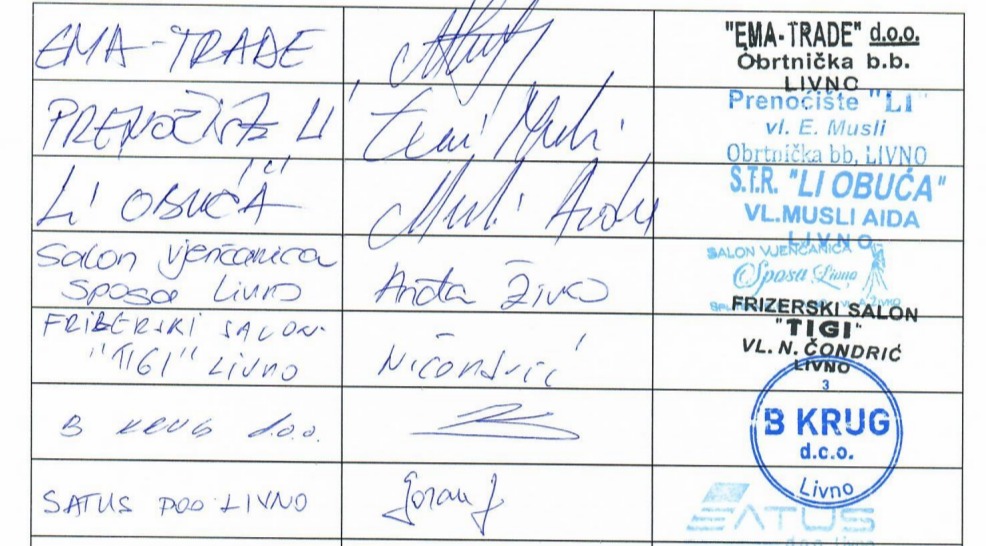 EMA-TRADE
"EMA-TRADE" d.o.o.
Obrtnička b.b.
LIVNO
PRENOĆIŠTE LI
Prenoćište "LI"
vl. E. Musli
Obrtnička bb, LIVNO
LI OBUĆA
Š.T.R. "LI OBUĆA"
VL.MUSLI AIDA
LIVNO
Salon vjenčanica
Sposa Livno
Aneta Živko
SALON VJENČANICA
Sposa Livno
FRIBERSKI SALON
"TIGI" LIVNO
N.Čondrić
FRIZERSKI SALON
"TIGI"
VL. N. ČONDRIĆ
LIVNO
B KRUG d.o.o.
3
B KRUG
d.o.o.
Livno
SATUS DOO LIVNO
Goran J
SATUS